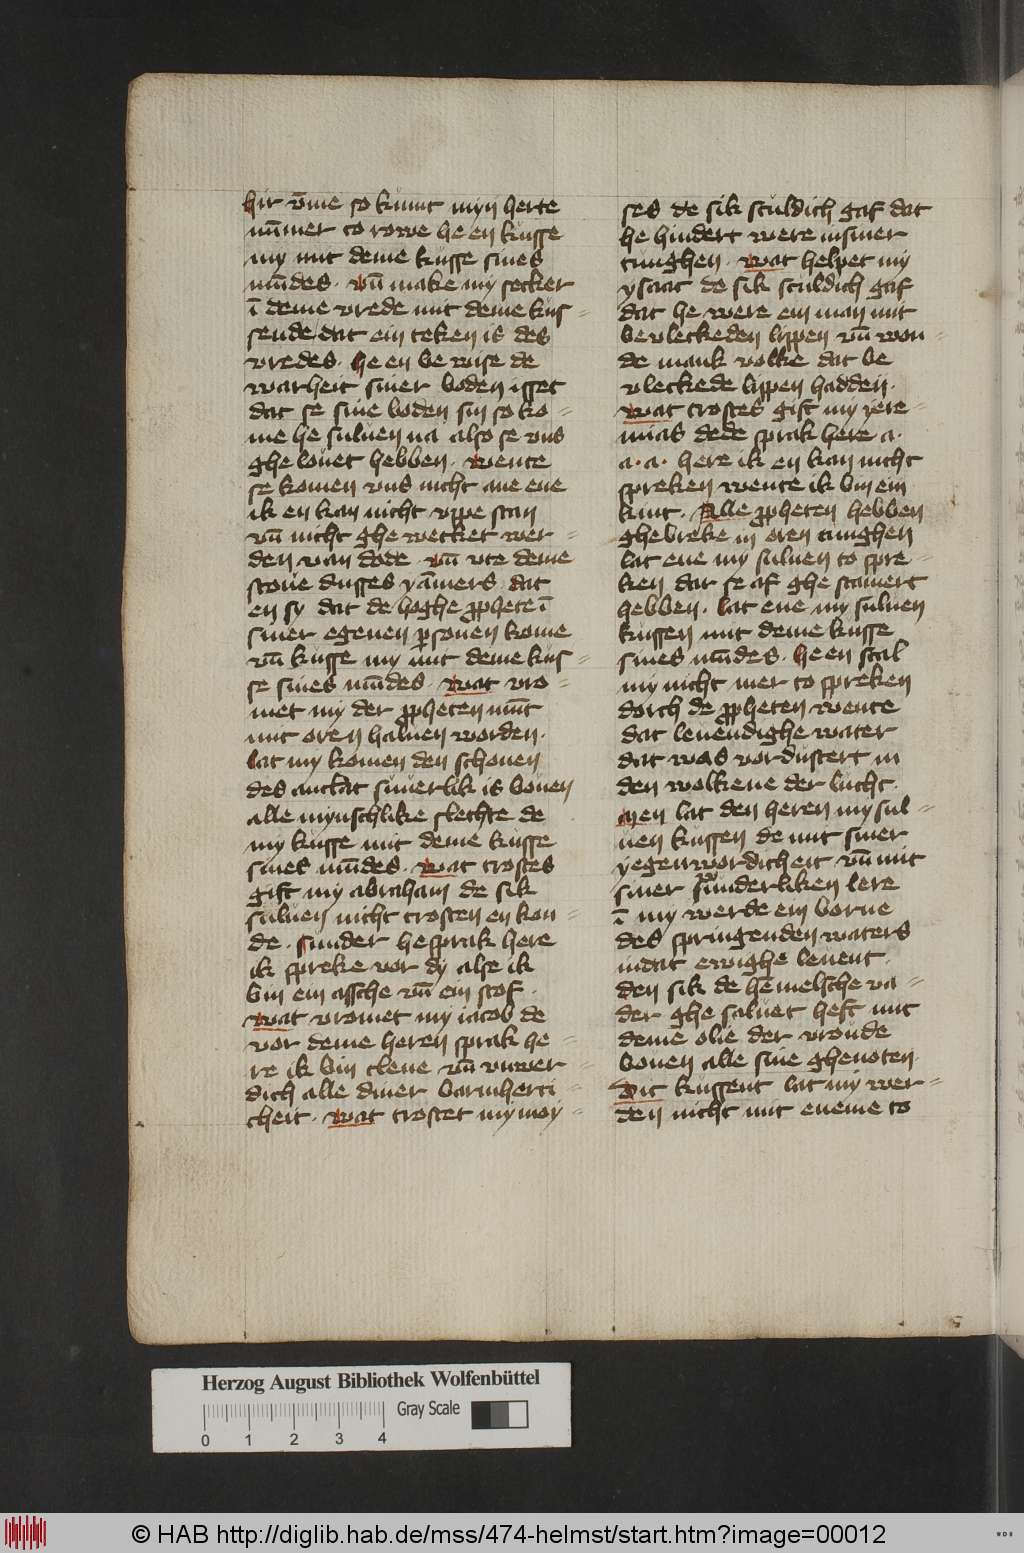 hir v̄me so kumt myn herte
nūmer to rowe he en kusse
my mit deme kusse sines
mūdes · vn̄ make my secker
ī deme vrede mit deme kus=
sende dat ein teken is des
vredes · he en be wise de
warheit siner boden isset
dat se sine boden sin so ko=
me he suluen na also se vns
ghe louet hebben · wente
se komen vns nicht ane ene
ik en kan nicht vppe stan
vn̄ nicht ghe wecket wer=
den van dode · vn̄ vte deme
stoue dusses yāmers · dat
en sy dat de hoghe ꝓphete ī
siner egenen ꝑsonen kome
vn̄ kusse my mit deme kus=
se sines mūdes · wat vro=
met my der ꝓpheten mūt
mit oren haluen worden ·
lat my komen den schonen
des anclat suuerlik is bouen
alle mynschlike slechte de
my kusse mit deme kusse
sines mūdes · wat trostes
gift my abraham de sik
suluen nicht trosten en kon=
de · sunder he sprak here
ik spreke vor dy alse ik
bin ein assche vn̄ ein stof ·
wat vromet my iacob de
vor deme heren sprak he=
re ik bin clene vn̄ vnwer=
dich alle diner barmherti=
cheit · wat trostet my moy=
ses de sik sculdich gaf dat
he hindert were in siner
tunghen · wat helpet my
ysaat de sik sculdich gaf
dat he were ein man mit
be vleckeden lippen vn̄ won=
de mank volke dat be
vleckede lippen hadden ·
wat trostes gift my jere
mias dede sprak here a ·
a · a · here ik en kan nicht
spreken wente ik bin ein
kint · Alle ꝓpheten hebben
ghebreke in oren tunghen
lat ene my suluen to spre=
ken dar se af ghe stamert
hebben · lat ene my suluen
kussen mit deme kusse
sines mūdes · he en scal
my nicht mer to spreken
dorch de ꝓpheten wente
dat leuendighe water
dat was vordustert in
den wolkene der lucht ·
men lat den heren my sul=
uen kussen de mit siner
yegenwordicheit vn̄ mit
siner sunderliken lere
ī my werde ein borne
des springenden waters
in dat ewighe leuent ·
den sik de hēmelsche va=
der ghe saluet heft mit
deme olie der vroude
bouen alle sine ghenoten ·
Dit kussent lat my wer=
den nicht mit eneme to
Herzog August Bibliothek Wolfenbüttel
Gray Scale
0 1 2 3 4
© HAB http://diglib.hab.de/mss/474-helmst/start.htm?image=00012